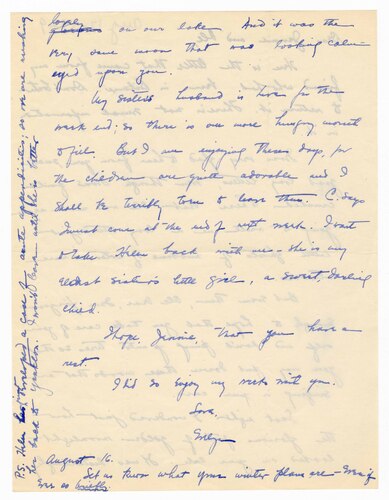 lovely on our lake. And it was the
very same moon that was looking calm-
eyed upon you.
My sister's husband is here for the
week end; so there is one more hungry mouth
to fill. But I am enjoying these days, for
the children are quite adorable and I
shall be terribly torn to leave them. C. says
I must come at the end of next week. I want
to take Helen back with me - she is my
oldest sister's little girl, a sweet, darling
child.
I hope, Jennie, that you have a
rest.
I did so enjoy my week with you.
Love,
Evelyn
August 16.
Let us know what your winter plans are - Even if
ever so
P.S. Helen has developed a case of acute appendicitis; so we are rushing
her back to I won't leave until she is better